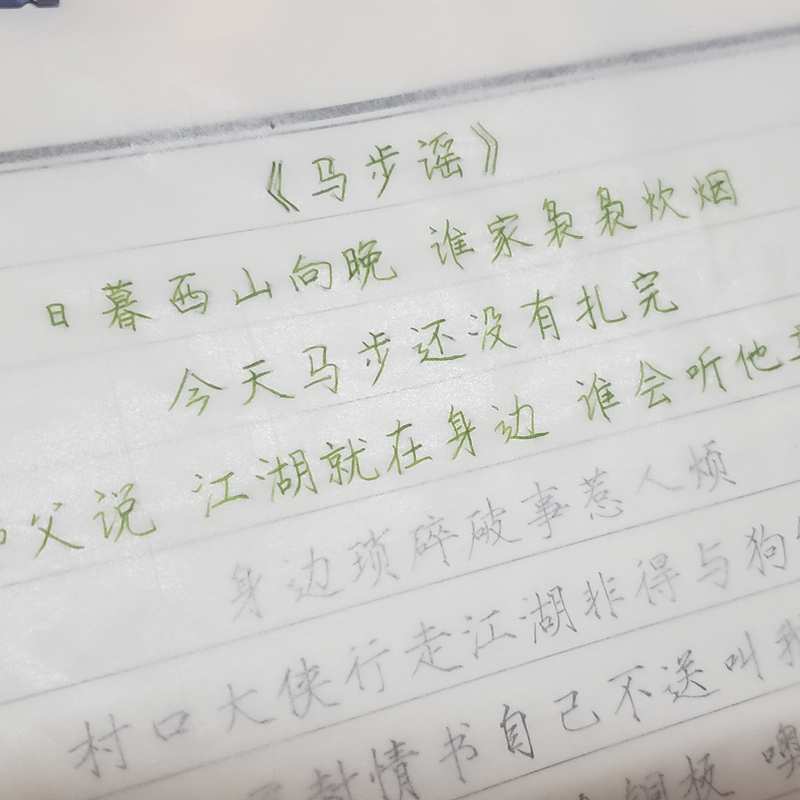 《马步谣》
日暮西山向晚 谁家袅袅炊烟
今天马步还没有扎完
父说 江湖就在身边 谁会听他
身边琐碎破事惹人烦
村口大侠行走江湖非得与狗
封情书自己不送叫我
铜板 噢